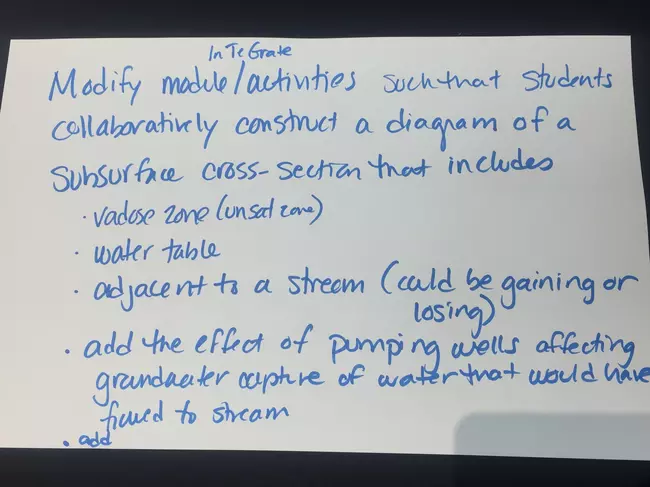 InTeGrate
Modify module/activities such that students
collaboratively construct a diagram of a
subsurface cross-section that includes
· vadose zone (unsat zone)
· water table
· adjacent to a stream (could be gaining or
losing)
· add the effect of pumping wells affecting
groundwater capture of water that would have
flowed to stream
· add